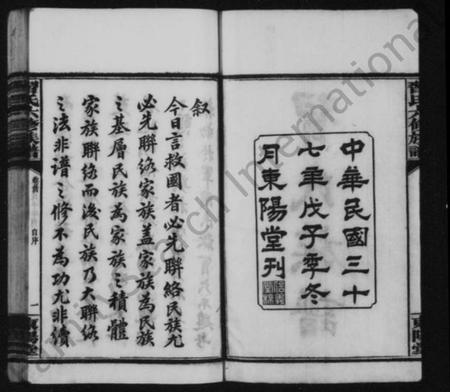 中華民國三十
七年戊子季冬
月東陽堂刊
叙
今日言救國者必先聯絡民族尤
必先聯絡家族蓋家族為民族
之基層民族為家族之積體
家族聯絡而後民族乃大聯絡
之法非譜之修不為功尤非續
卷首
自序
一
東陽堂
FamilySearch International